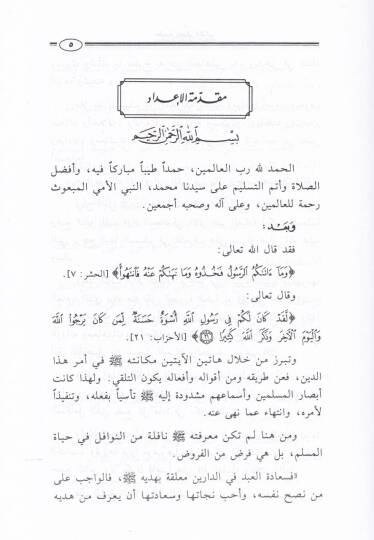 ٥
مقدمة الإعداد
بِسْمِ اللهِ الرَّحْمٰنِ الرَّحِيمِ
الحمد لله رب العالمين، حمداً طيباً مباركاً فيه، وأفضل
الصلاة وأتم التسليم على سيدنا محمد، النبي الأمي المبعوث
رحمة للعالمين، وعلى آله وصحبه أجمعين.
وبَعْـد:
فقد قال الله تعالى:
﴿وَمَا ءَاتَاكُمُ الرَّسُولُ فَخُذُوهُ وَمَا نَهَاكُمْ عَنْهُ فَانتَهُوا﴾ [الحشر: ٧].
وقال تعالى:
﴿لَّقَدْ كَانَ لَكُمْ فِي رَسُولِ اللَّهِ أُسْوَةٌ حَسَنَةٌ لِّمَن كَانَ يَرْجُوا اللَّهَ
وَالْيَوْمَ الْآخِرَ وَذَكَرَ اللَّهَ كَثِيرًا ۝٢١﴾ [الأحزاب: ٢١].
وتبرز من خلال هاتين الآيتين مكانته ﷺ في أمر هذا
الدين، فعن طريقه ومن أقواله وأفعاله يكون التلقي. ولهذا كانت
أبصار المسلمين وأسماعهم مشدودة إليه ﷺ تأسياً بفعله، وتنفيذاً
لأمره، وانتهاء عما نهى عنه.
ومن هنا لم تكن معرفته ﷺ نافلة من النوافل في حياة
المسلم، بل هي فرض من الفروض.
«فسعادة العبد في الدارين معلقة بهديه ﷺ، فالواجب على
من نصح نفسه، وأحب نجاتها وسعادتها أن يعرف من هديه